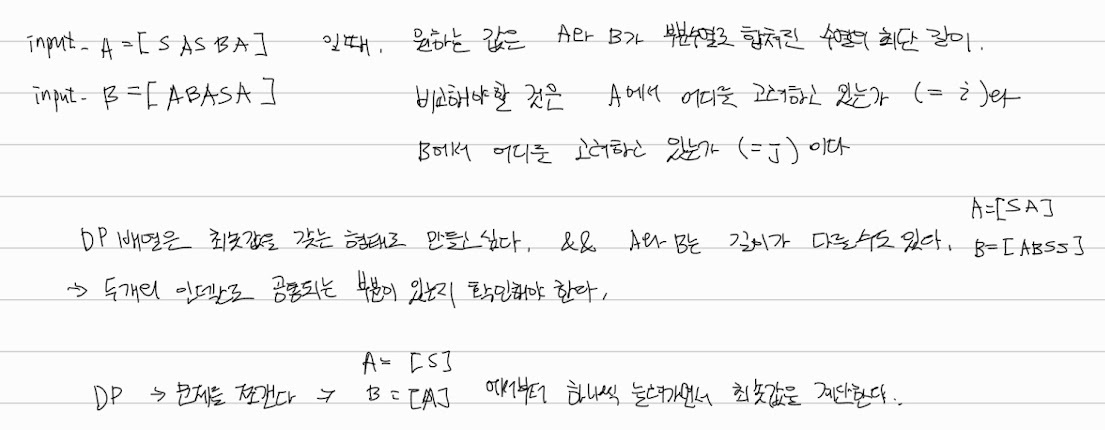 input - A = [ S A S B A ] 일때, 원하는 값은 A와 B가 부분수열로 합쳐진 수열의 최단 길이.
input - B = [ A B A S A ] 비교해야할 것은 A에서 어디를 고려하고 있는가 (= i)와
B에서 어디를 고려하고 있는가 (= j) 이다
A=[SA]
DP 배열은 최솟값을 갖는 형태로 만들고 싶다. && A와 B는 길이가 다를수도 있다. B=[ABSS]
→ 두개의 인덱스로 공통되는 부분이 있는지 확인해야 한다.
A= [S]
DP → 문제를 쪼갠다 → B = [A] 에서부터 하나씩 늘려가면서 최솟값을 계산한다.